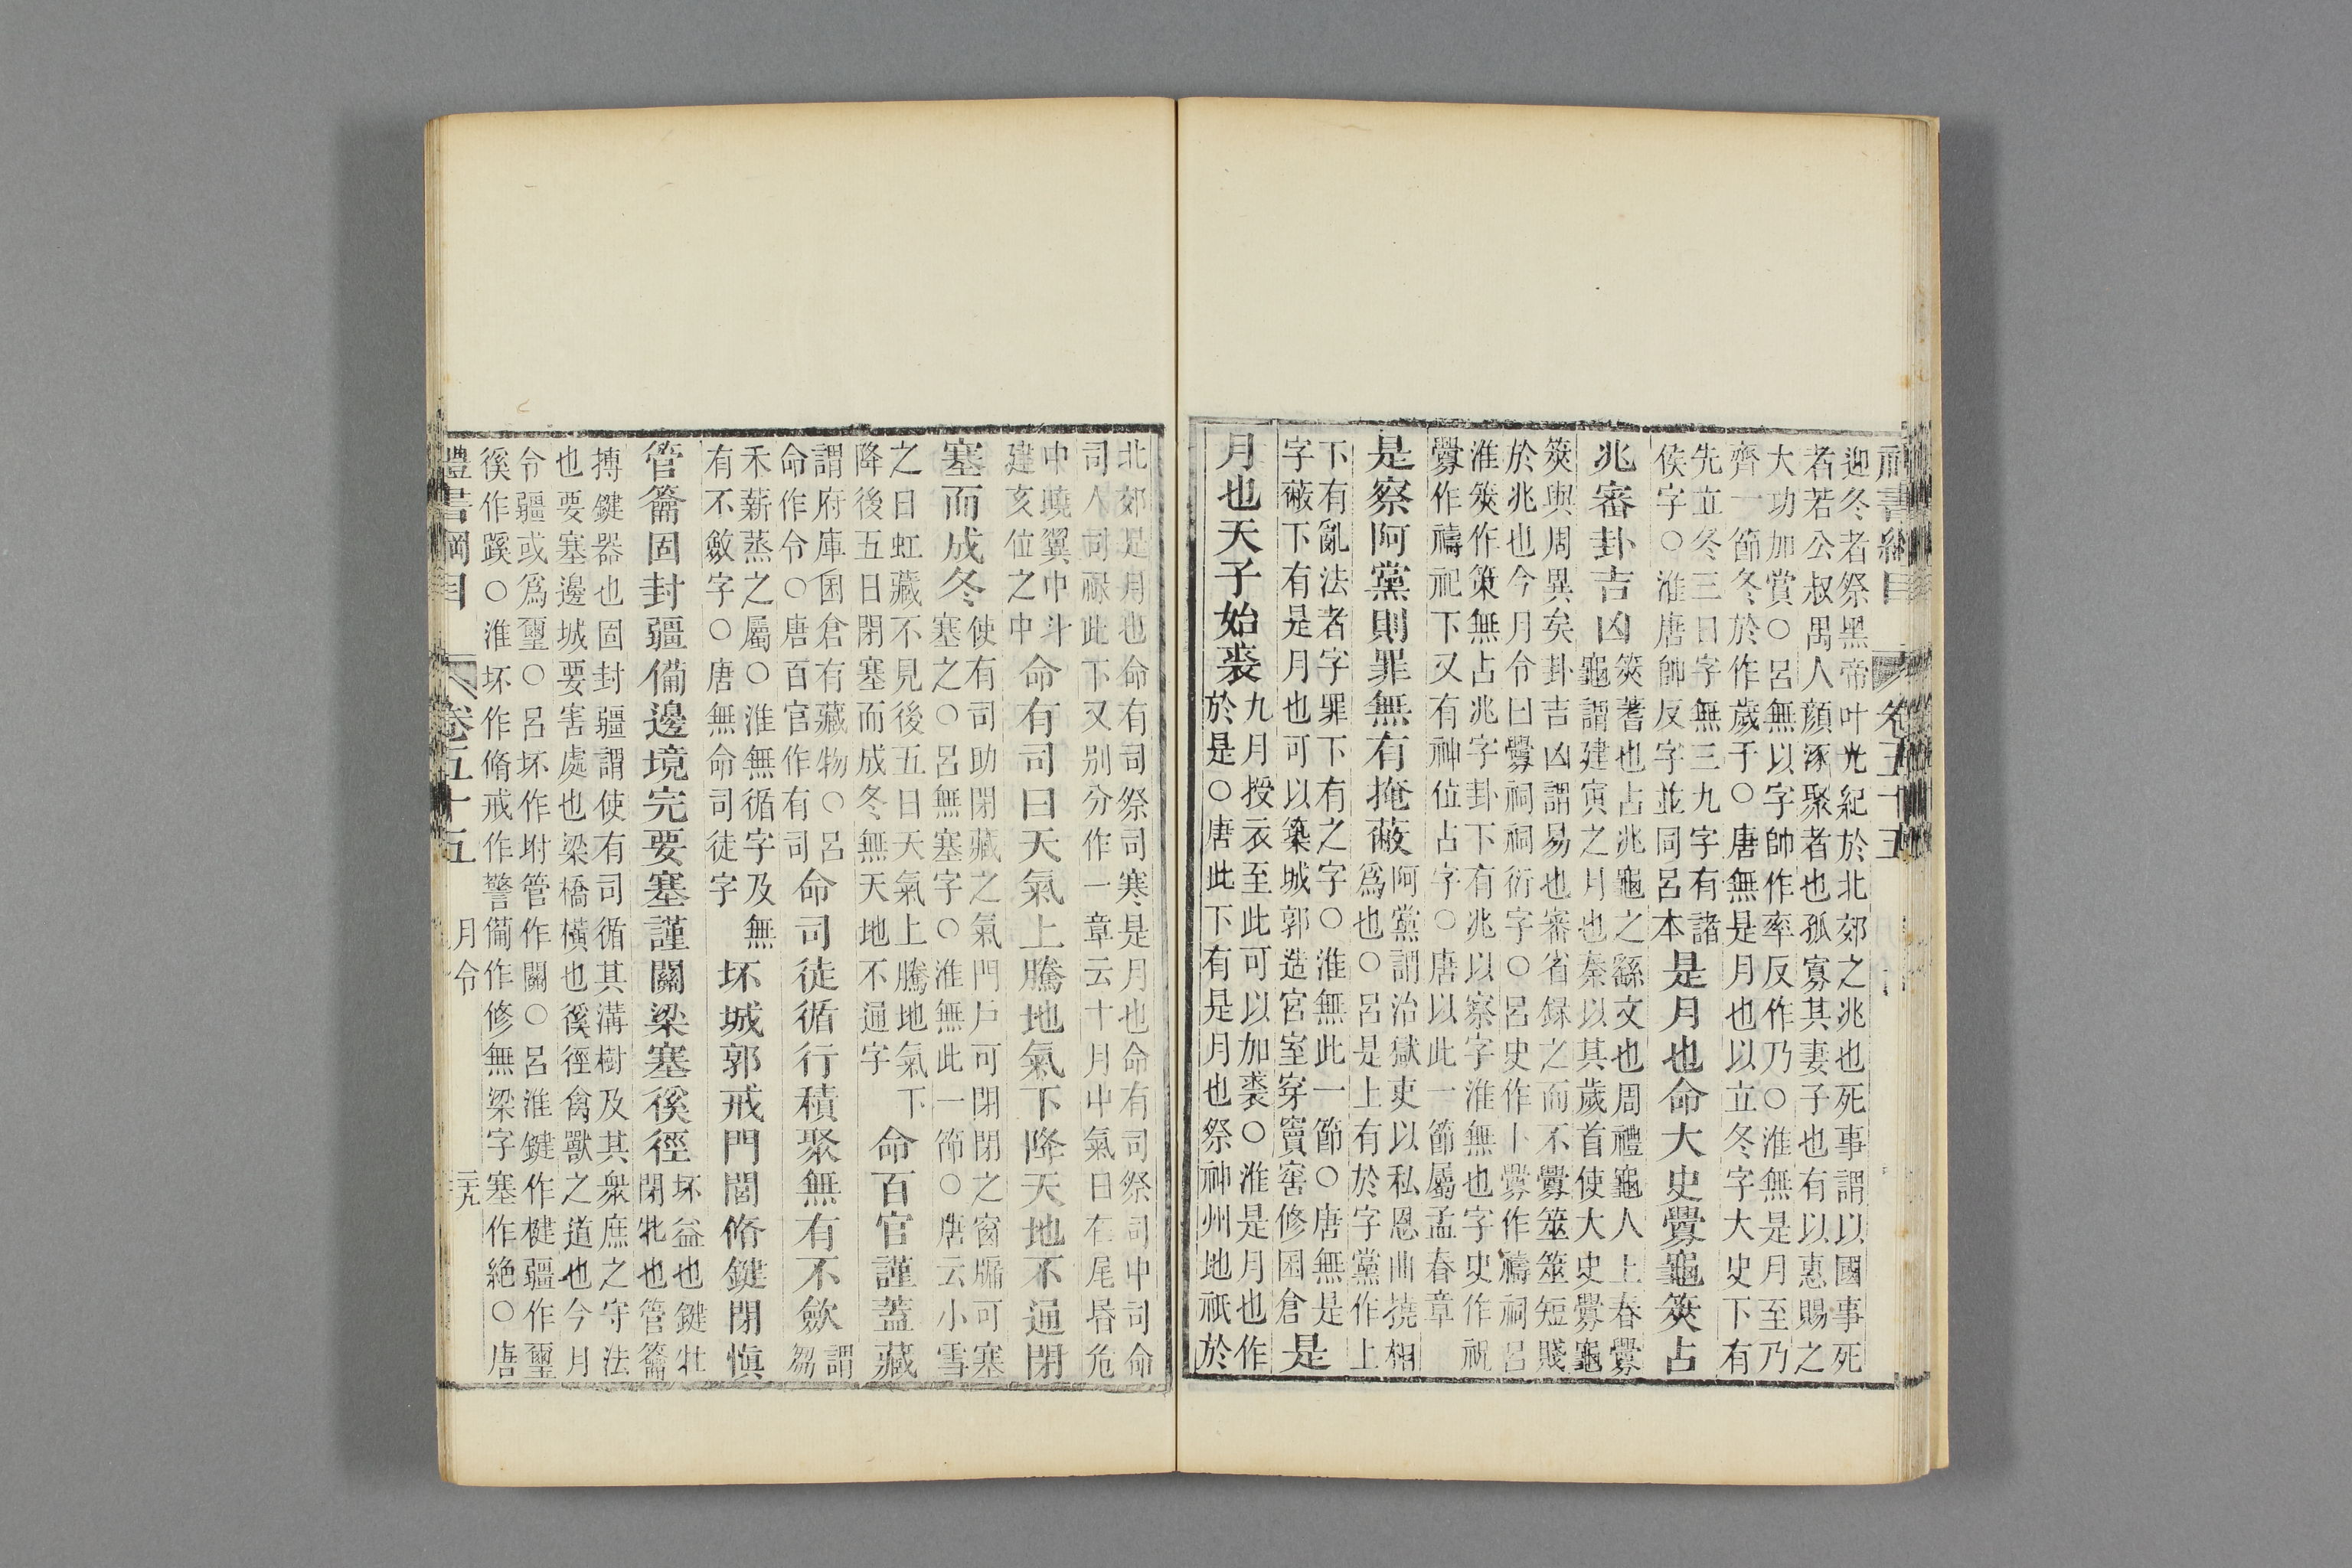 禮書綱目 卷五十五
迎冬者祭黑帝叶光紀於北郊之兆也死事謂以國事死
者若公叔禺人顏涿聚者也孤寡其妻子也有以惠賜之
大功加賞○呂無以字帥作率反作乃○淮無是月至乃
齊一節冬於作歲于○唐無是月也以立冬字大史下有
先立冬三日字無三九字有諸
侯字○淮唐帥反字並同呂本
是月也命大史釁龜筴占
兆審卦吉凶
筴蓍也占兆龜之繇文也周禮龜人上春釁
龜謂建寅之月也秦以其歲首使大史釁龜
筴與周異矣卦吉凶謂易也審省録之而不釁筮筮短賤
於兆也今月令曰釁祠祠衍字○呂史作卜釁作禱祠呂
淮筴作策無占兆字卦下有兆以察字淮無也字史作祝
釁作禱祀下又有神位占字○唐以此一節屬孟春章
是察阿黨則罪無有掩蔽
阿黨謂治獄吏以私恩曲撓相
爲也○呂是上有於字黨作上
下有亂法者字罪下有之字○淮無此一節○唐無是
字蔽下有是月也可以築城郭造宮室穿竇窖修囷倉
是
月也天子始裘
九月授衣至此可以加裘○淮是月也作
於是○唐此下有是月也祭神州地祇於
北郊是月也命有司祭司寒是月也命有司祭司中司命
司人司祿此下又別分作一章云十月中氣日在尾昏危
中曉翼中斗
建亥位之中
命有司曰天氣上騰地氣下降天地不通閉
塞而成冬
使有司助閉藏之氣門戶可閉閉之窗牖可塞
塞之○呂無塞字○淮無此一節○唐云小雪
之日虹藏不見後五日天氣上騰地氣下
降後五日閉塞而成冬無天地不通字
命百官謹蓋藏
謂府庫囷倉有藏物○呂
命作令○唐百官作有司
命司徒循行積聚無有不斂
謂芻
禾薪蒸之屬○淮無循字及無
有不斂字○唐無命司徒字
坏城郭戒門閭脩鍵閉慎
管籥固封疆備邊境完要塞謹關梁塞徯徑
坏益也鍵牡
閉牝也管籥
搏鍵器也固封疆謂使有司循其溝樹及其衆庶之守法
也要塞邊城要害處也梁橋橫也徯徑禽獸之道也今月
令疆或爲璽○呂坏作坿管作關○呂淮鍵作楗疆作璽
徯作蹊○淮坏作脩戒作警備作修無梁字塞作絶○唐
禮書綱目 卷五十五 月令 二十九